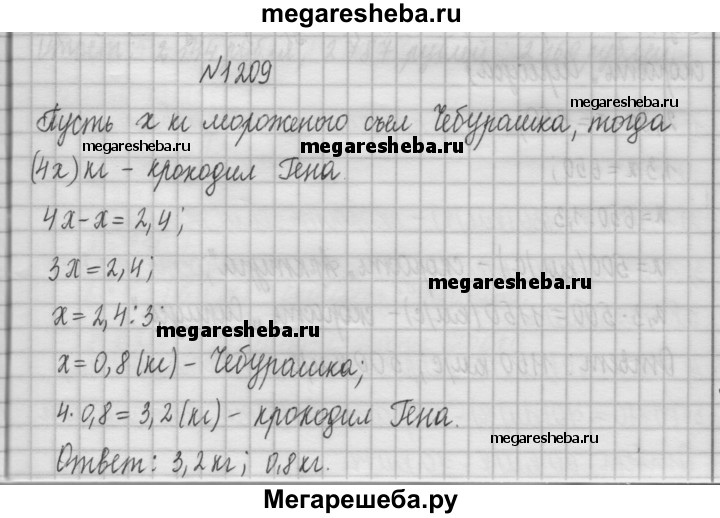 megaresheba.ru
N1209
megaresheba.ru
Пусть x кг мороженого съел Чебурашка, тогда
megaresheba.ru megaresheba.ru
(4x) кг - крокодил Гена.
4x-x=2,4;
3x=2,4;
megaresheba.ru
x=2,4:3;
megaresheba.ru
x=0,8(кг) - Чебурашка;
4·0,8=3,2(кг) - крокодил Гена.
megaresheba.ru
Ответ: 3,2кг; 0,8кг.
Мегарешеба.ру